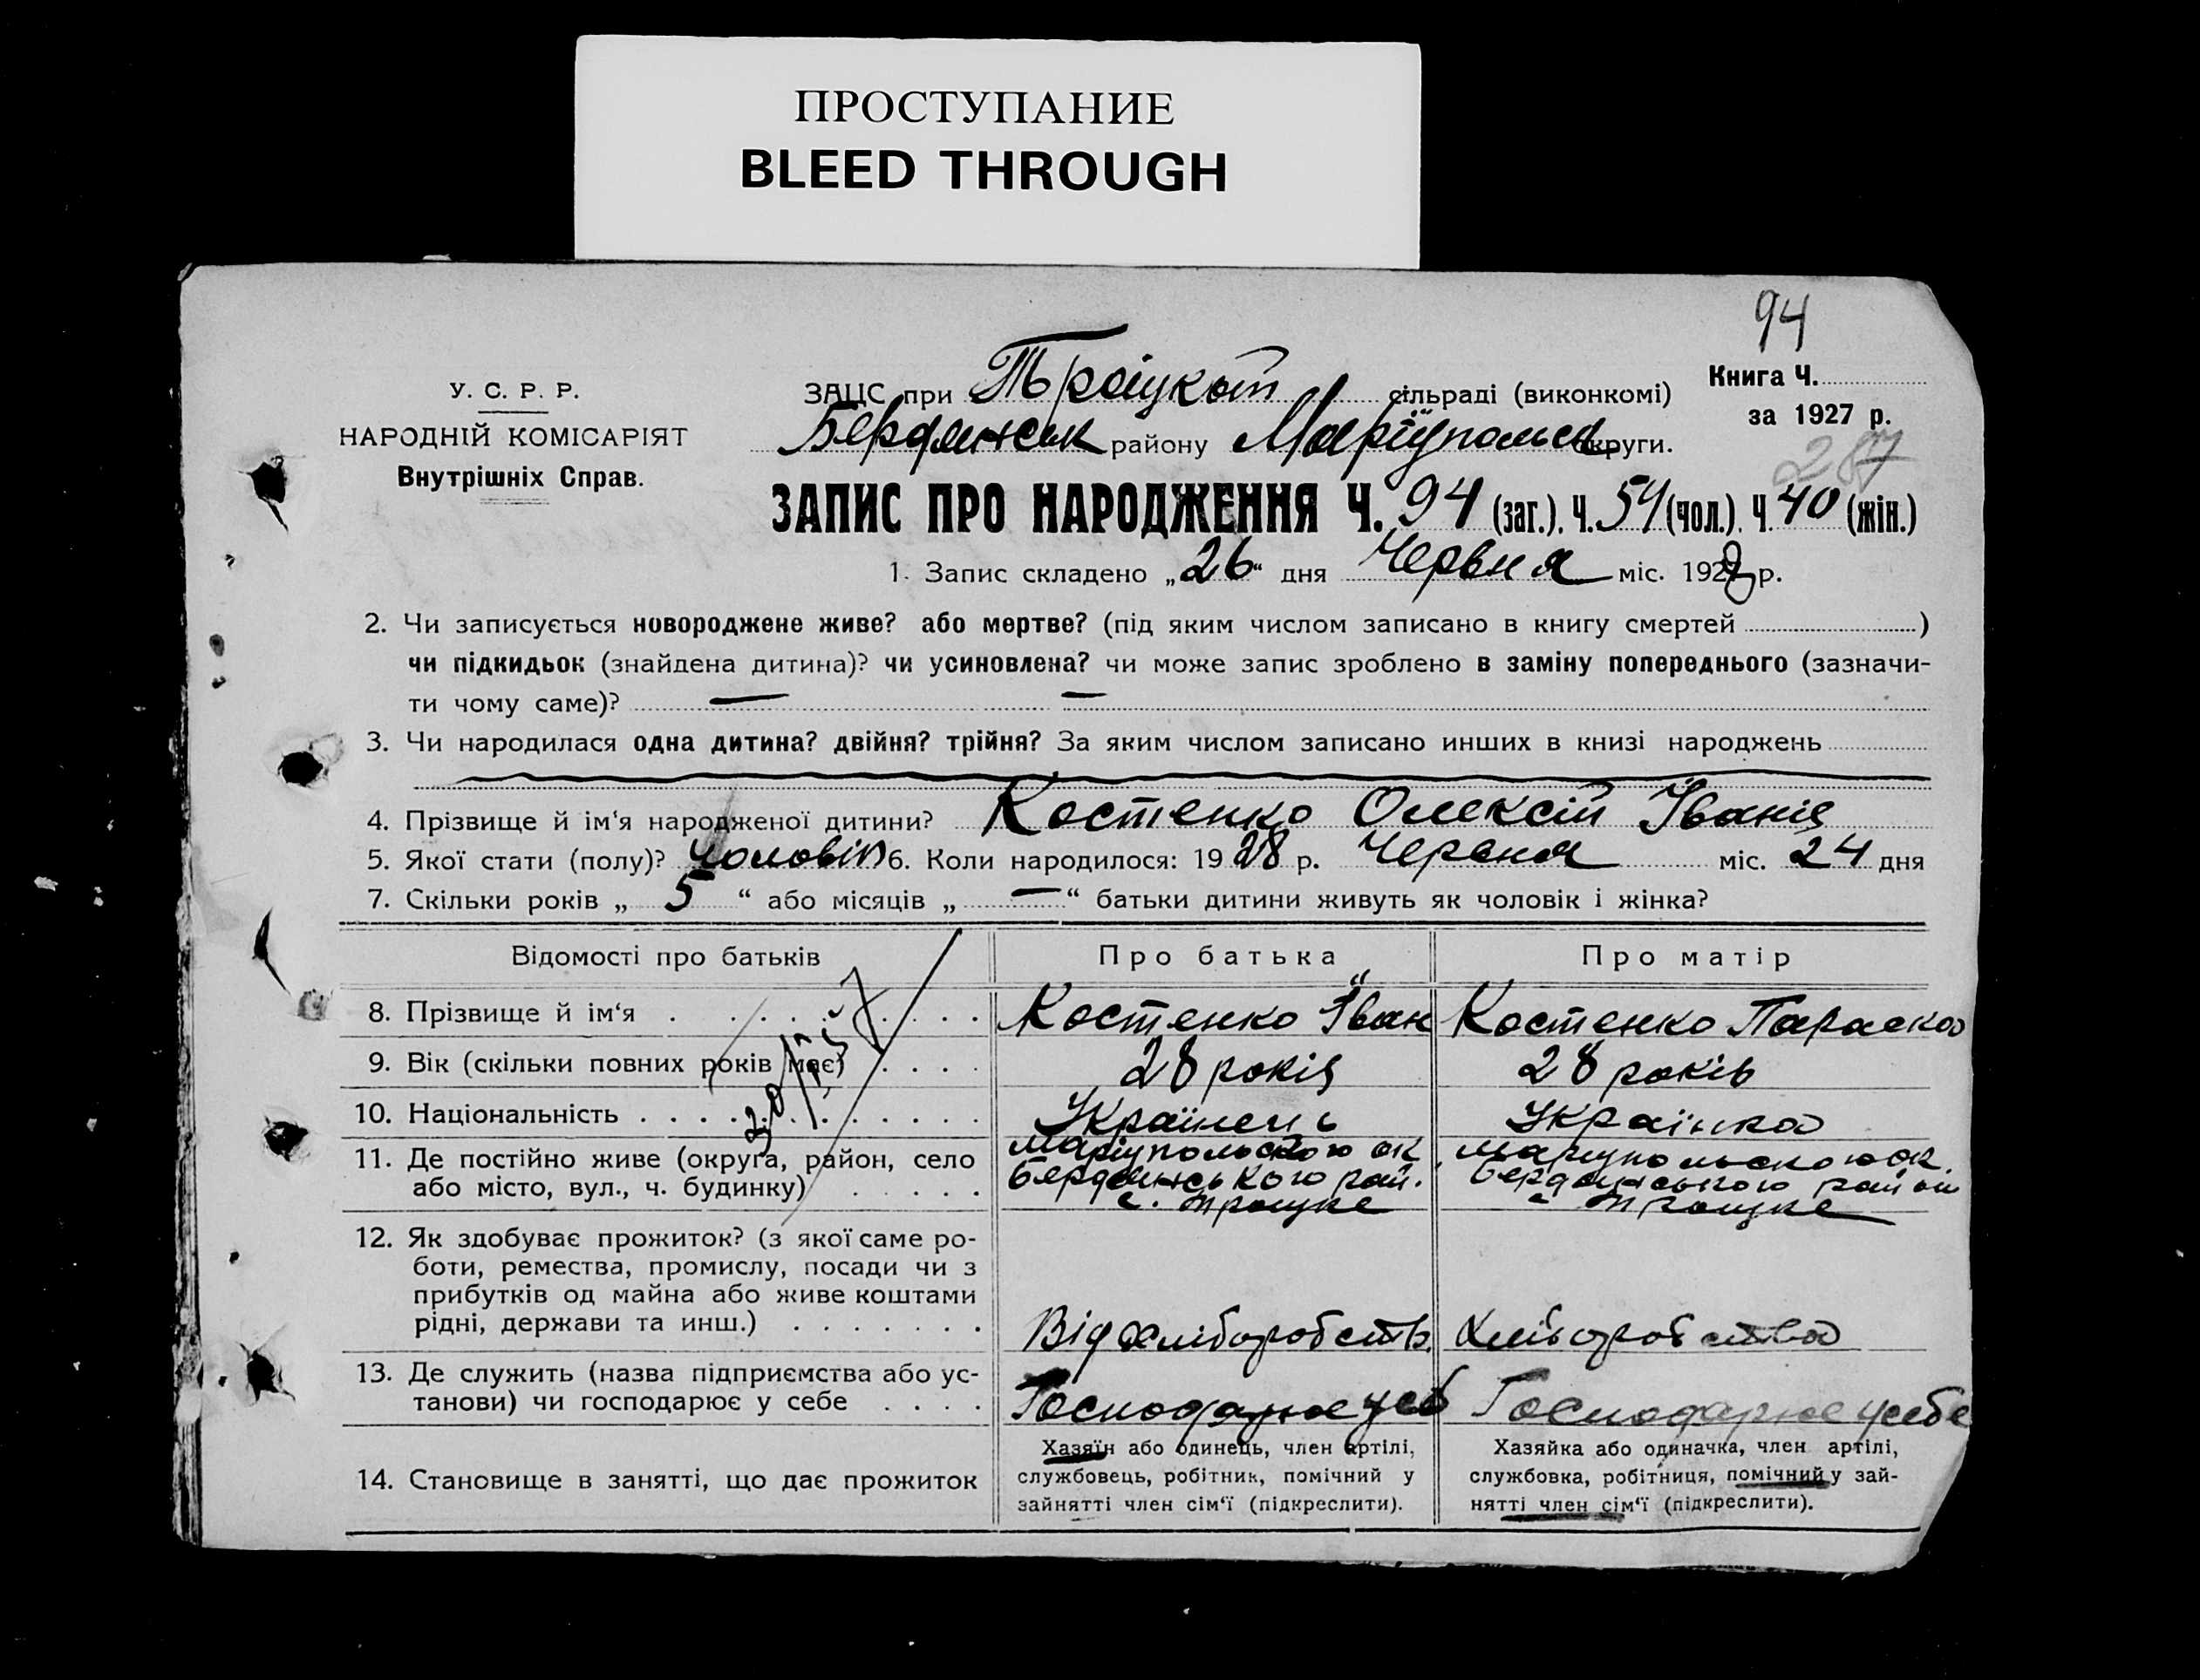 ПРОСТУПАНИЕ
BLEED THROUGH
94
У. С. Р. Р.
НАРОДНІЙ КОМІСАРІЯТ
Внутрішніх Справ.
ЗАЦС при Троіцкой сільраді (виконкомі)
Бердянськ району Маріупольск округи.
Книга Ч.
за 1927 р.
287
ЗАПИС ПРО НАРОДЖЕННЯ Ч. 94 (заг.). Ч. 54 (чол.). Ч. 40 (жін.)
1. Запис складено „26“ дня Червня міс. 1928 р.
2. Чи записується новороджене живе? або мертве? (під яким числом записано в книгу смертей )
чи підкидьок (знайдена дитина)? чи усиновлена? чи може запис зроблено в заміну попереднього (зазначи-
ти чому саме)? — —
3. Чи народилася одна дитина? двійня? трійня? За яким числом записано инших в книзі народжень
4. Прізвище й ім‘я народженої дитини? Костенко Олексій Іванів
5. Якої стати (полу)? чоловіч 6. Коли народилося: 1928 р. Червня міс. 24 дня
7. Скільки років „ 5 “ або місяців „ — “ батьки дитини живуть як чоловік і жінка?
Відомості про батьків Про батька Про матір
8. Прізвище й ім‘я Костенко Іван Костенко Параска
9. Вік (скільки повних років має) 28 років 28 років
10. Національність Українець Українка
11. Де постійно живе (округа, район, село
або місто, вул., ч. будинку)
Маріупольского ок
Бердянського рай.
с. Троицке
Маріупольского ок.
Бердянського район
с Троицке
12. Як здобуває прожиток? (з якої саме ро-
боти, ремества, промислу, посади чи з
прибутків од майна або живе коштами
рідні, держави та инш.) Від хліборобств. Хліборобства
13. Де служить (назва підприємства або ус-
танови) чи господарює у себе Господарює у себ Господарює у себе
14. Становище в занятті, що дає прожиток
Хазяїн або одинець, член артілі,
службовець, робітник, помічний у
зайнятті член сім‘ї (підкреслити).
Хазяйка або одиначка, член артілі,
службовка, робітниця, помічний у зай-
нятті член сім‘ї (підкреслити).